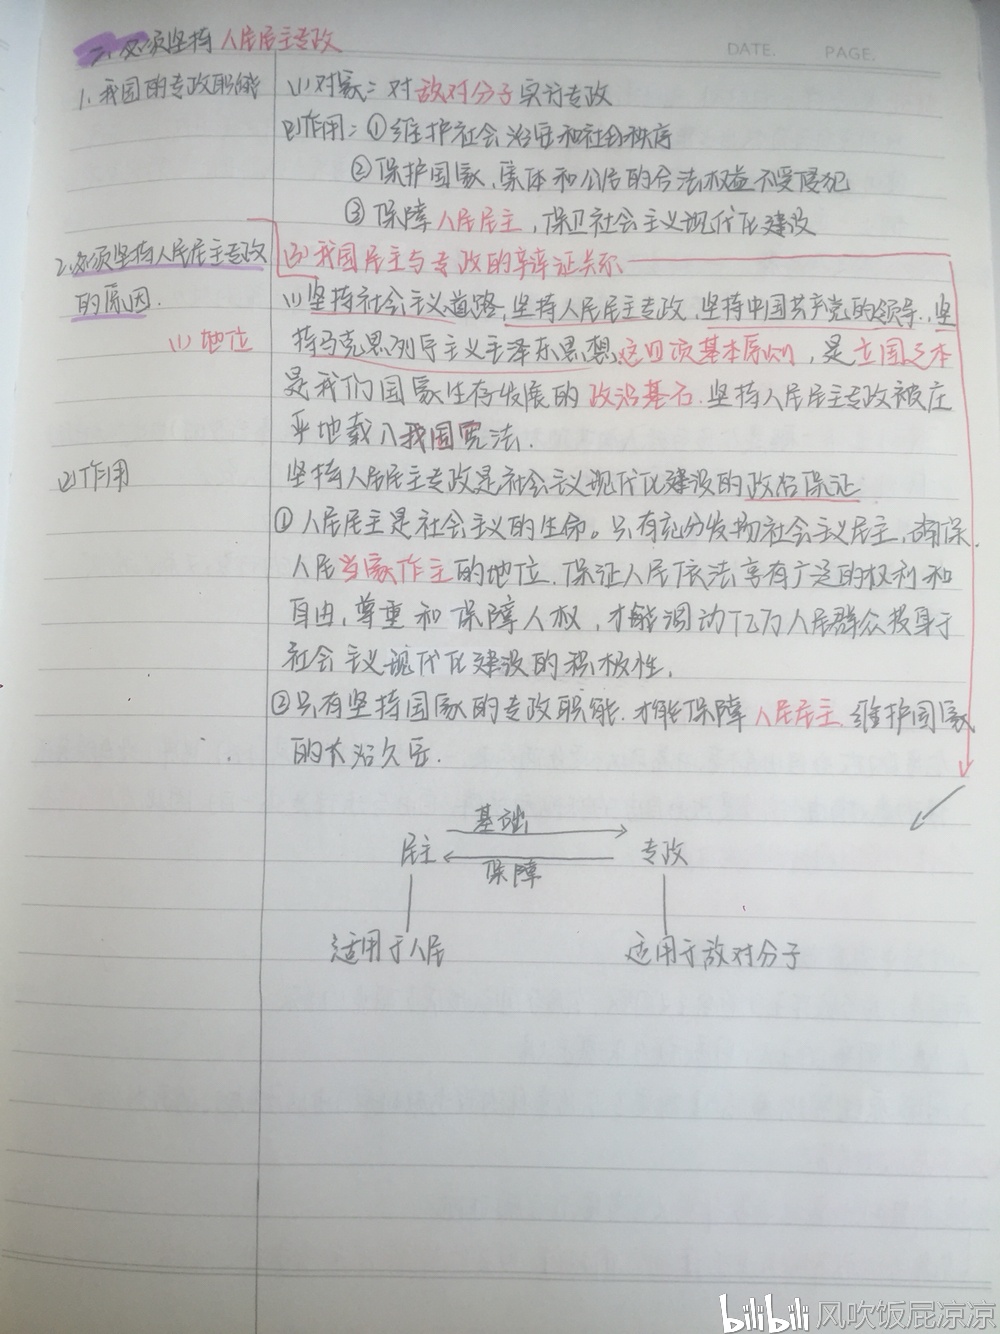 二、必须坚持人民民主专政
DATE. PAGE.
1、我国的专政职能
(1)对象：对敌对分子实行专政
(2)作用：①维护社会治安和社会秩序
②保护国家、集体和公民的合法权益不受侵犯
③保障人民民主，保卫社会主义现代化建设
2、必须坚持人民民主专政
的原因.
(3)我国民主与专政的辩证关系
(1)地位
(1)坚持社会主义道路、坚持人民民主专政、坚持中国共产党的领导、坚
持马克思列宁主义毛泽东思想这四项基本原则，是立国之本
是我们国家生存发展的政治基石.坚持人民民主专政被庄
严地载入我国宪法.
(2)作用
坚持人民民主专政是社会主义现代化建设的政治保证
①人民民主是社会主义的生命。只有充分发扬社会主义民主，确保
人民当家作主的地位、保证人民依法享有广泛的权利和
自由，尊重和保障人权，才能调动亿万人民群众投身于
社会主义现代化建设的积极性.
②只有坚持国家的专政职能.才能保障人民民主.维护国家
的长治久安.
基础
民主 专政
保障
适用于人民 适用于敌对分子
bilibili 风吹饭屁凉凉